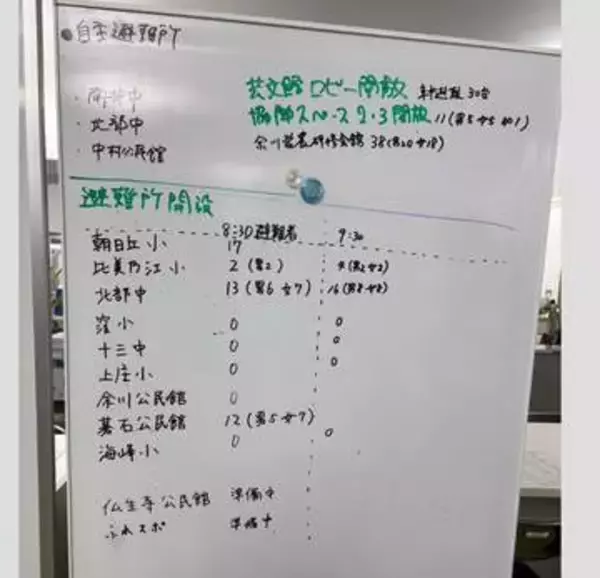 ●自主避難所
芸文館 ロビー開放 車避難 30台
・北部中 協働スペース 2・3開放 11(男5 女5
・中村公民館 余川 研修会館 38(男20 女18)
避難所開設
8:30避難者 9:30
朝日丘小 17
比美乃江小 2(男2) 4(男2女2)
北部中 13(男6 女7) 16(男8女8)
窪小 0 0
十三中 0 0
上庄小 0 0
余川公民館 0
碁石公民館 12(男5女7)
海峰小 0 0
仏生寺公民館 準備中
ふれスポ 準備中